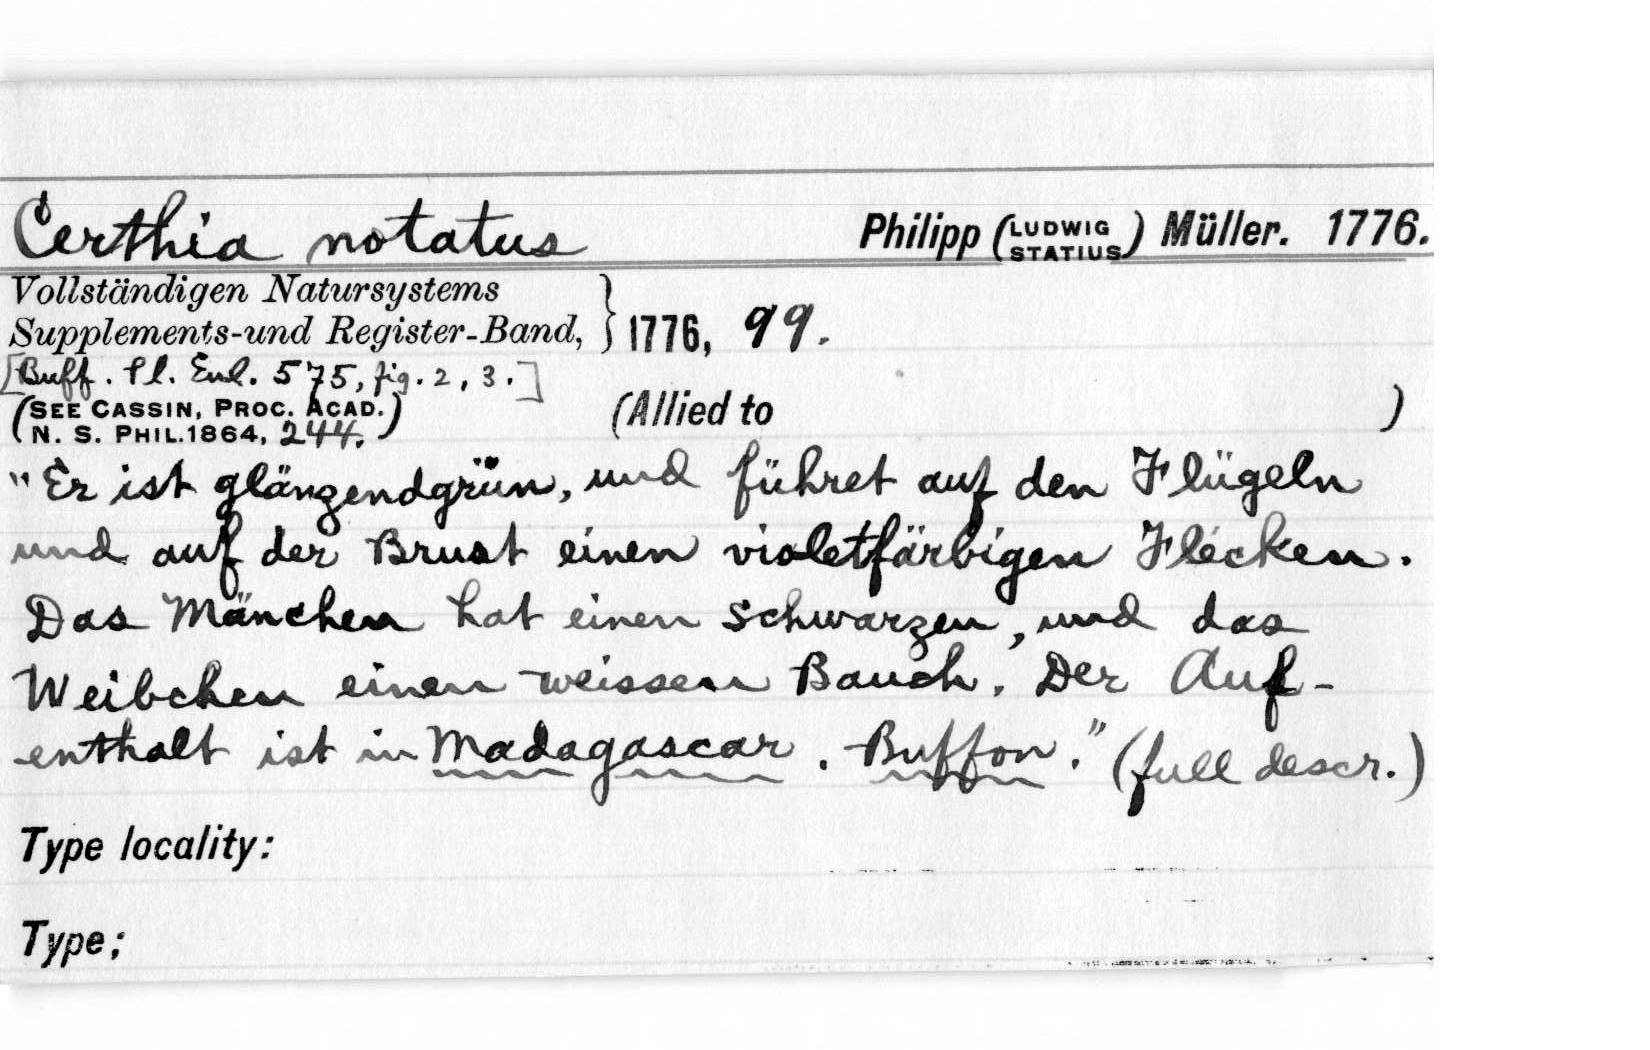 Certhia notatus Philipp (LUDWIG STATIUS) Müller. 1776.
Vollständigen Natursystems
Supplements-und Register-Band, } 1776, 99.
[Buff. Pl. Enl. 575, fig. 2, 3.]
(SEE CASSIN, PROC. ACAD.
N. S. PHIL. 1864, 244.) (Allied to )
"Er ist glänzendgrün, und führet auf den Flügeln
und auf der Brust einen violetfärbigen Flecken.
Das Mänchen hat einen schwarzen, und das
Weibchen einen weissen Bauch. Der Auf-
enthalt ist in Madagascar. Buffon." (full descr.)
Type locality:
Type: